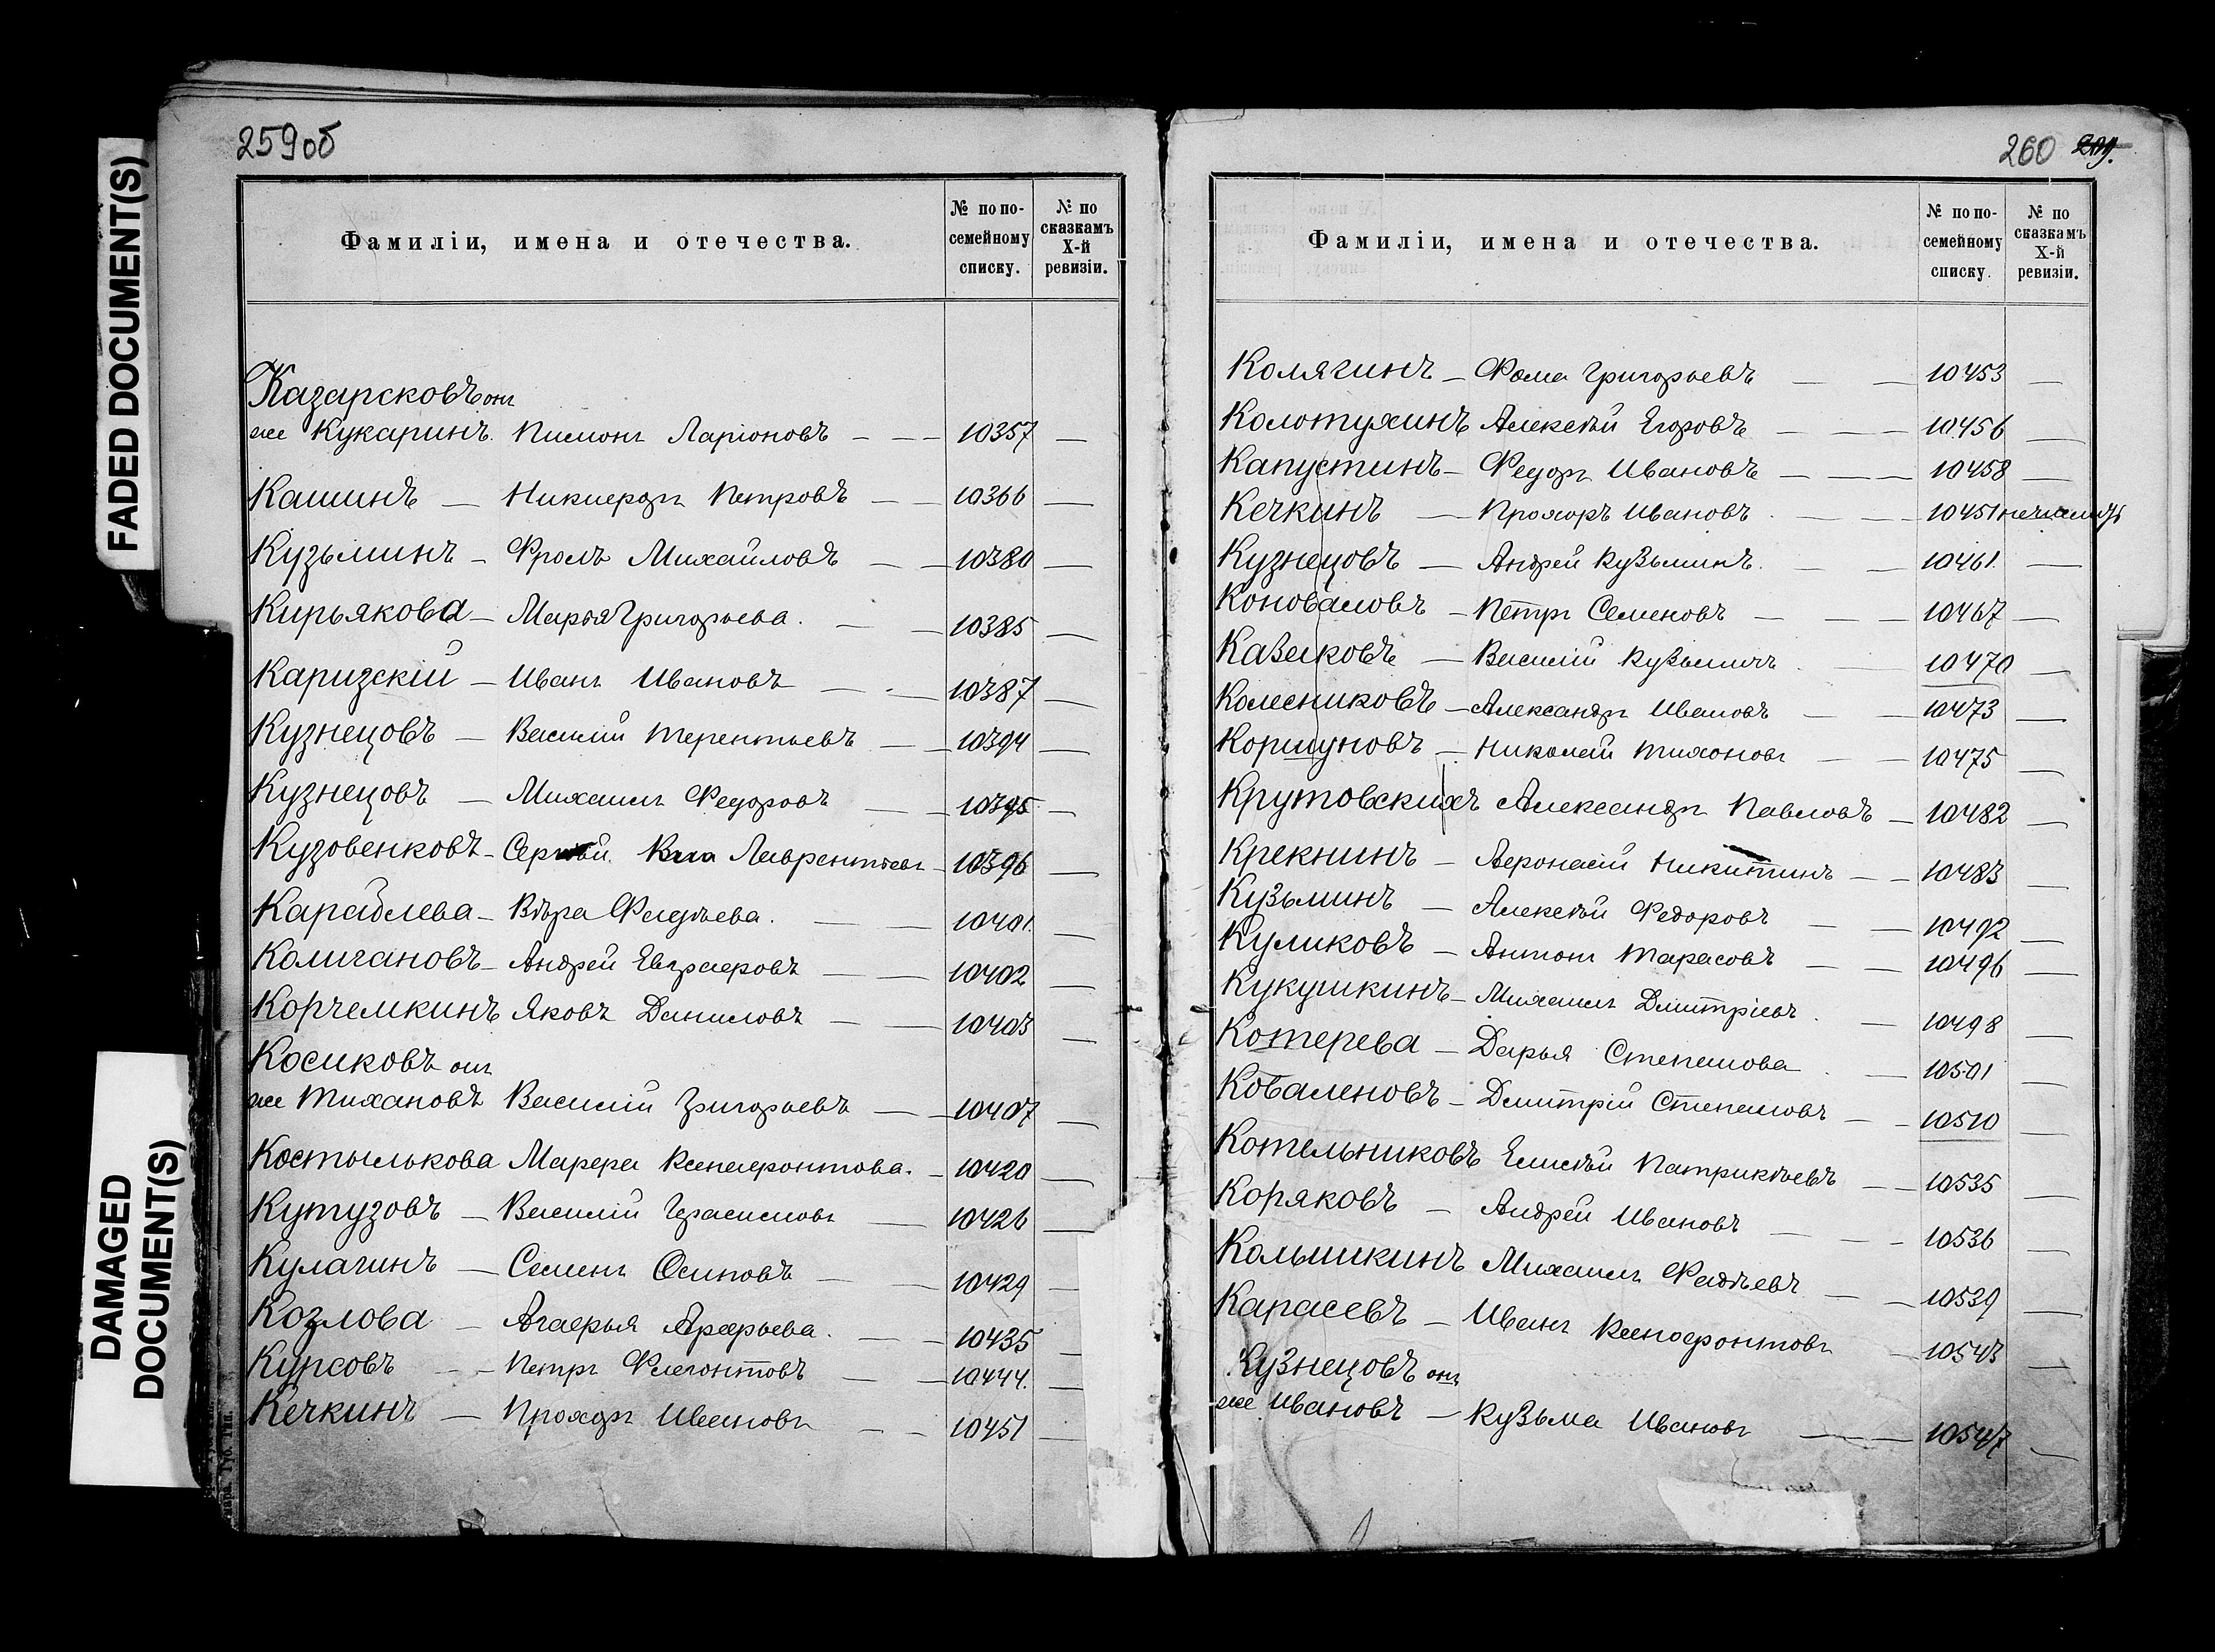 FADED DOCUMENT(S)
DAMAGED
DOCUMENT(S)
259об
Фамиліи, имена и отечества.
№ по по-
семейному
списку.
№ по
сказкамъ
X-й
ревизіи.
Казарсковъ онъ
же Кукаринъ. Пимонъ Ларіоновъ — — — 10357 —
Кашинъ — Никифоръ Петровъ — — 10366 —
Кузьминъ — Фролъ Михайловъ — — 10380 —
Кирьякова — Марья Григорьева. — — 10385 —
Каризскій — Иванъ Ивановъ — — 10387 —
Кузнецовъ — Василій Терентьевъ — — 10394 —
Кузнецовъ — Михаилъ Федоровъ — — 10395 —
Кузовенковъ — Сергѣй Лаврентьевъ — 10396 —
Карайлева — Вѣра Фадѣева. — — 10401. —
Колигановъ — Андрей Евграфовъ — — 10402 —
Корчемкинъ Яковъ Даниловъ — — 10403 —
Косиковъ онъ
же Тихановъ Василій Григорьевъ — — 10407 —
Костылькова Марфа Ксенофонтова. — 10420 —
Кутузовъ — Василій Герасимовъ — 10426 —
Кулагинъ — Семенъ Осиповъ — — 10429 —
Козлова — Агафья Арефьева. — — 10435 —
Курсовъ — — Петръ Флегонтовъ — — 10444. —
Кечкинъ — Прохоръ Ивановъ — — 10451 —
260 209.
Фамиліи, имена и отечества.
№ по по-
семейному
списку.
№ по
сказкамъ
X-й
ревизіи.
Колягинъ — Фома Григорьевъ — — 10453 —
Колотухинъ Алексѣй Егоровъ — — — 10456 —
Капустинъ — Федоръ Ивановъ — — — 10458 —
Кечкинъ — Прохоръ Ивановъ. — — 10451
Кузнецовъ — Андрей Кузьминъ. — — 10461. —
Коноваловъ — Петръ Семеновъ — — — 10467 —
Казаковъ — Василій Кузьмичъ. — 10470 —
Колесниковъ — Александръ Ивановъ — — 10473 —
Коршуновъ — Николай Тихоновъ — — 10475 —
Крутовскихъ Александръ Павловъ — 10482 —
Крекнинъ — Афонасій Никитинъ — — 10483 —
Кузьминъ — Алексѣй Федоровъ — — 10492 —
Куликовъ — Антонъ Тарасовъ — — 10496 —
Кукушкинъ — Михаилъ Дмитріевъ. — 10498 —
Котерева — Дарья Степанова. — 10501 —
Коваленовъ — Дмитрій Степановъ — — 10510 —
Котельниковъ Елисѣй Патрикѣевъ — — 10535 —
Коряковъ — Андрей Ивановъ — — — 10536 —
Колышкинъ Михаилъ Фадѣевъ — — 10539 —
Карасевъ — Иванъ Ксенофонтовъ — 10543 —
Кузнецовъ онъ
же Ивановъ — Кузьма Ивановъ — — — 10547 —